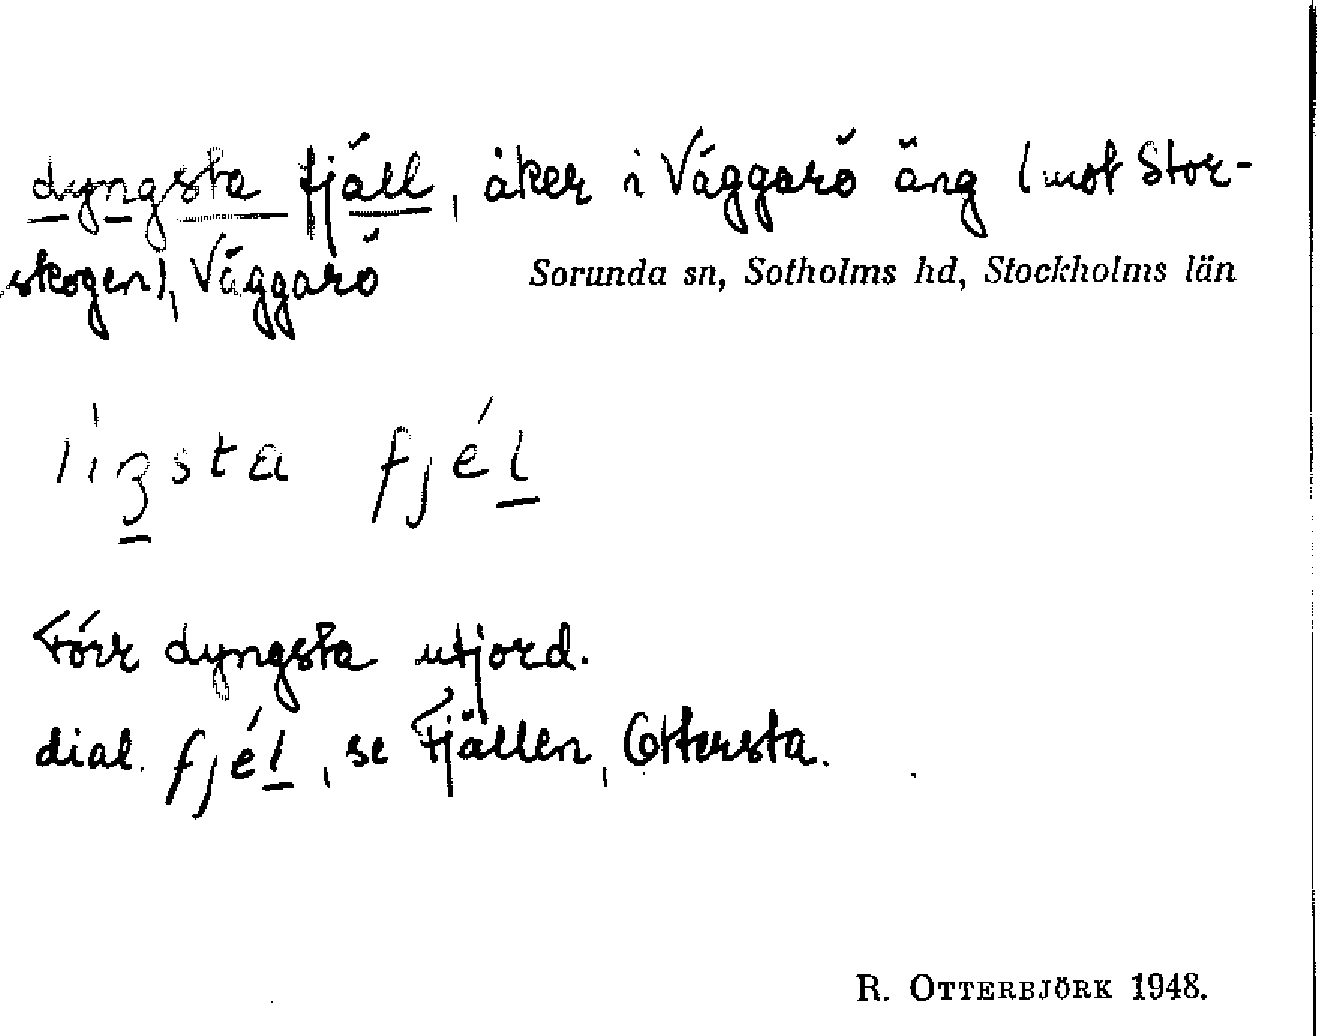 Lyngsta fjäll, åker i Väggarö äng (mot Stor-
skogen), Väggarö
Sorunda sn, Sotholms hd, Stockholms län
fjél
Förr Lyngsta utjord.
dial. fjél, se Fjällen, Ottersta.
R. OTTERBJÖRK 1948.